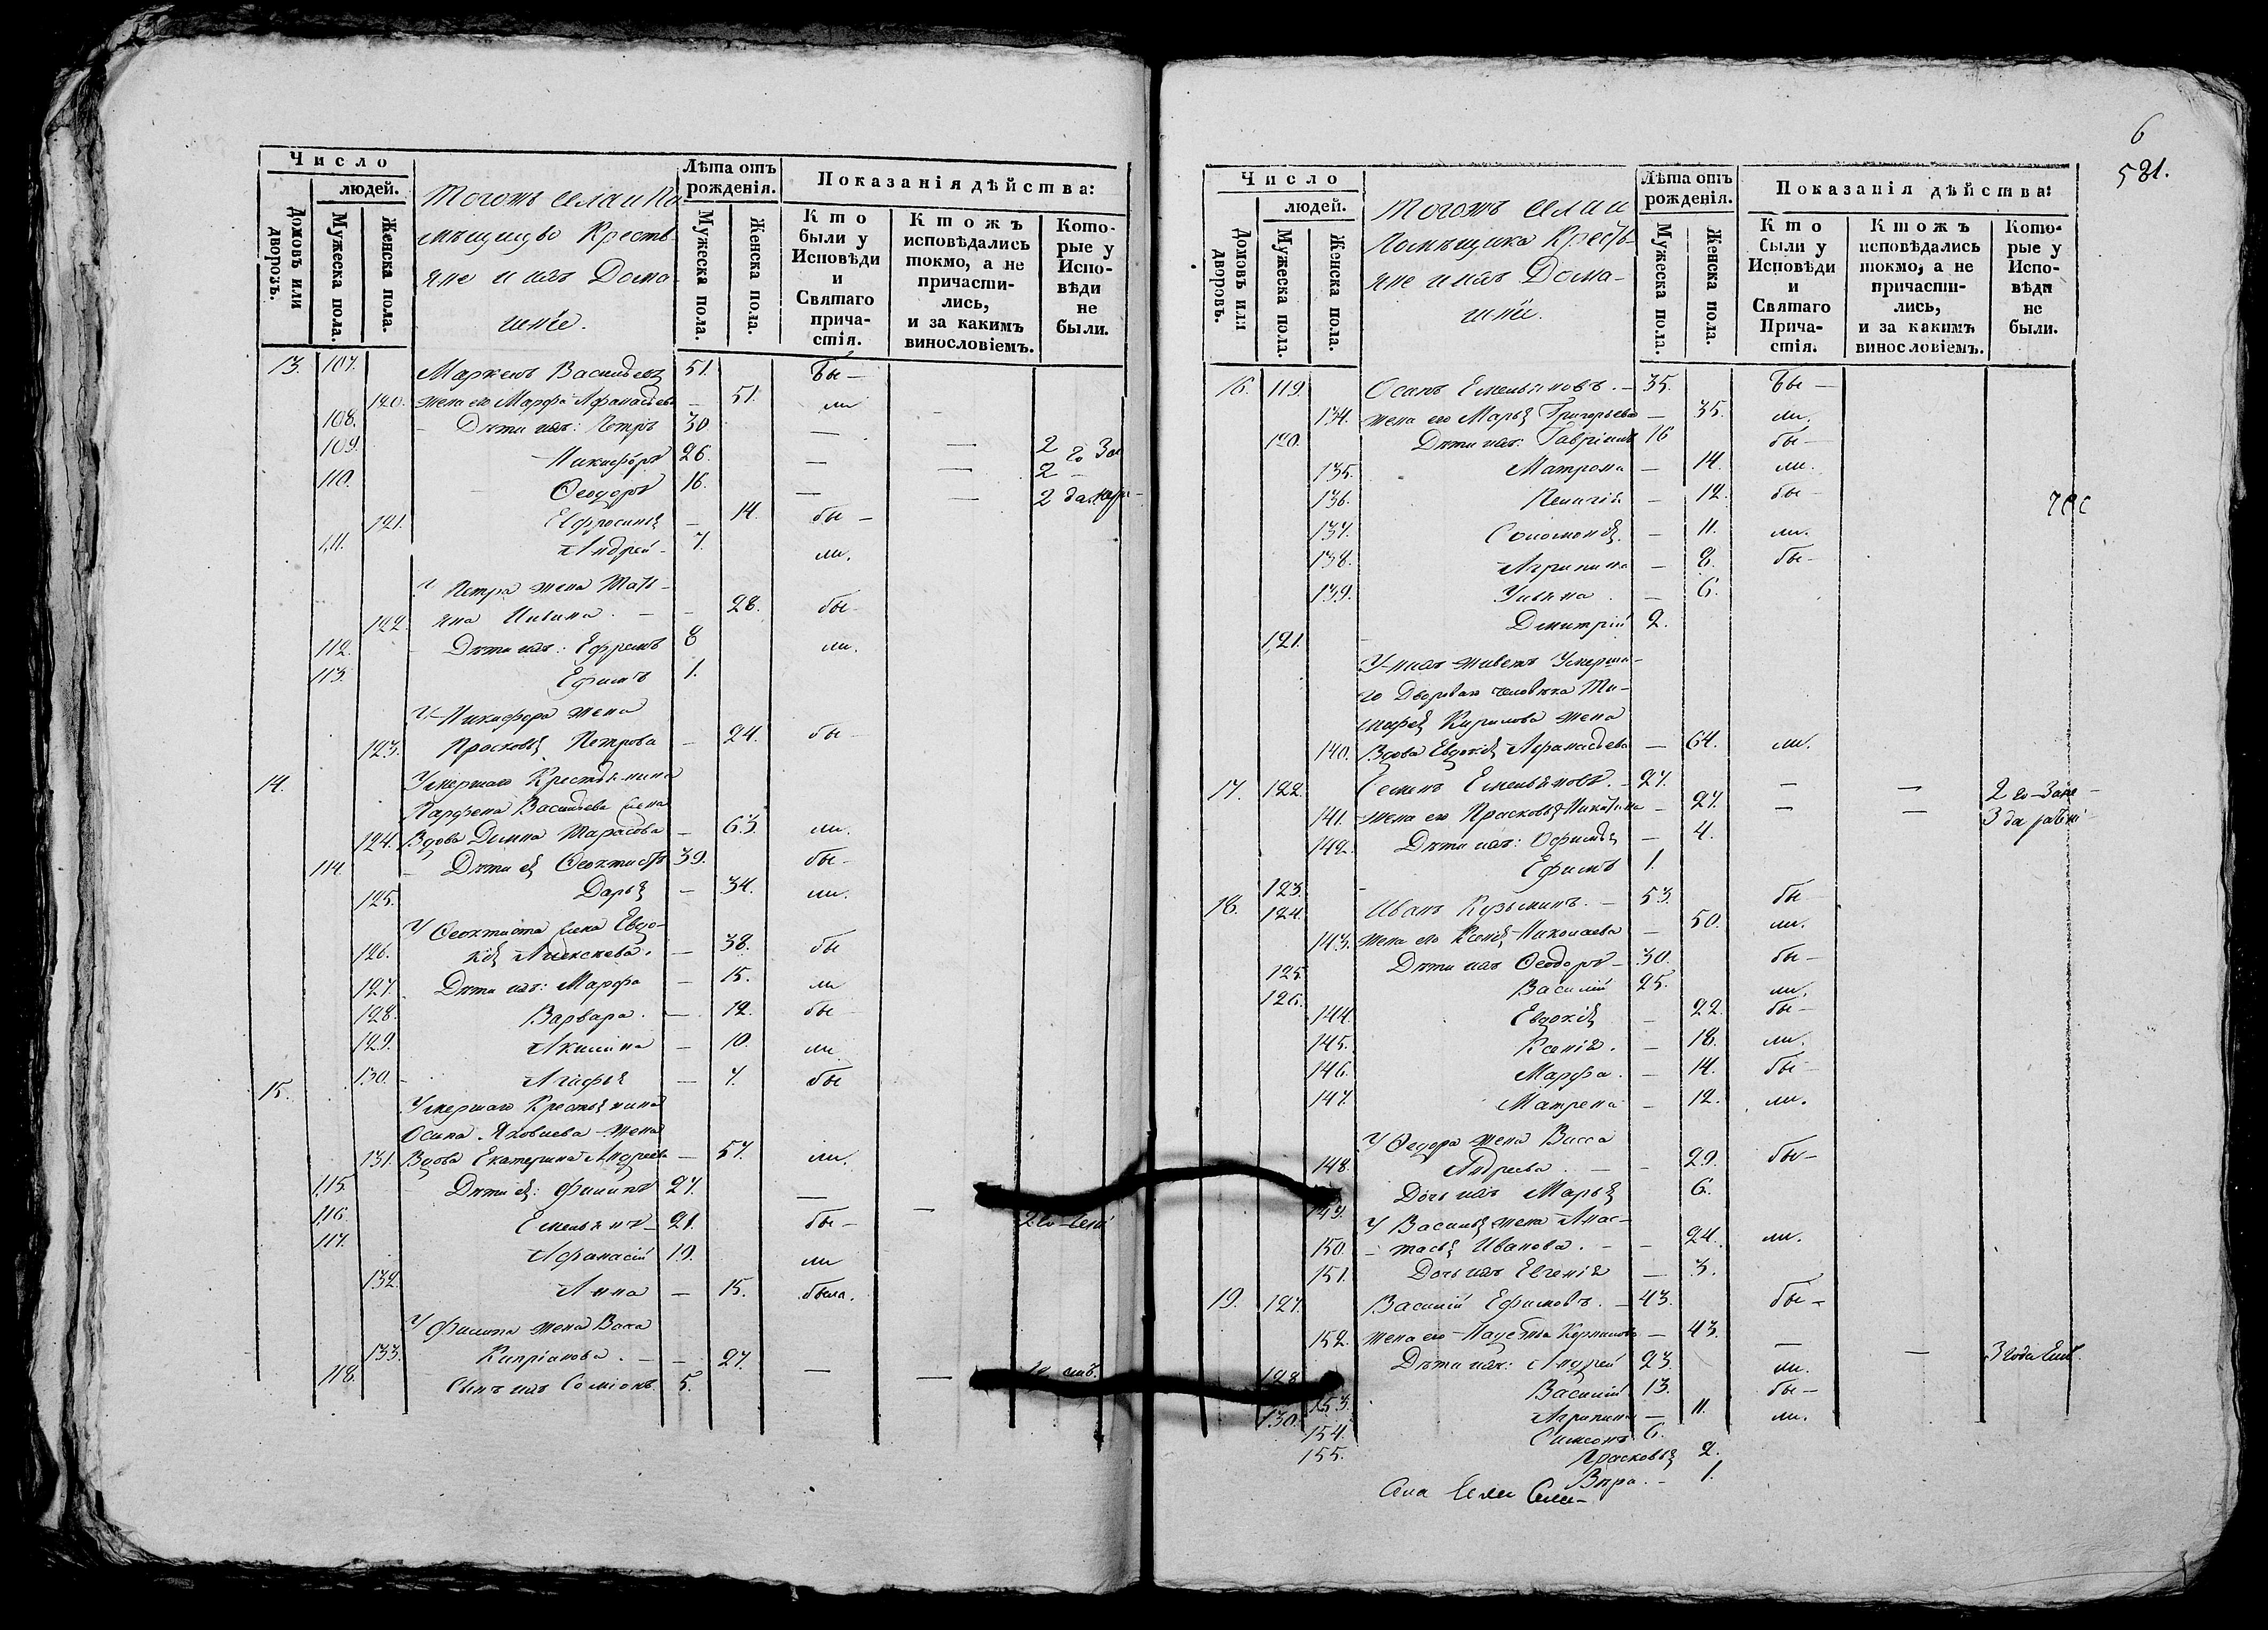 Число
людей.
Домовъ или дворовъ.
Мужеска пола.
Женска пола.
Тогожъ села и По
мѣщицы Кресть-
яне и ихъ Дома
шніе.
Лѣта отъ рожденія.
Мужеска пола.
Женска пола.
Показанія дѣйства:
Кто были у Исповѣди и Святаго причастія.
Ктожъ исповѣдались токмо, а не причастились, и за какимъ винословіемъ.
Которые у Исповѣди не были.
13. 107. Маркелъ Васильевъ 51. бы-
120. жена его Марфа Афанасьева - 51. ли
108. Дѣти ихъ: Петръ 30 — — 2
109. Никифоръ 26. — — 2
110. Ѳеодоръ 16. — — 2
121. Евфросинія - 14. бы-
111. Андрей - 7. ли.
У Петра жена Тать-
122. яна - 28. бы-
112. Дѣти ихъ: Ефремъ 8 ли.
113. Ефимъ 1.
У Никифора жена
123. Прасковья Петрова - 24. бы-
14. Умершаго Крестьянина
Парфена Васильева жена
124. Вдова Домна Тарасова - 63. ли.
114. Дѣти ея Ѳеоктистъ 39. бы-
125. Дарья - 34. ли.
У Ѳеоктиста жена Евдо-
126. кія Алексѣева. - 38. бы
127. Дѣти ихъ: Марфа - 15. ли
128. Варвара. - 12. бы-
129. Акилина - 10. ли
130. Агафья - 7. бы
15. Умершаго Крестьянина
Осипа Яковлева жена
131. Вдова Екатерина Андреева - 57. ли.
115. Дѣти ея: Филипъ 27. —
116. Емельянъ 21. бы-
117. Афанасій 19. ли
132. Анна - 15. была.
У Филипа жена Васса
133. Кипріанова. - 27. —
118. Сынъ ихъ Соміонъ 5.
6
581.
Число
людей.
Домовъ или дворовъ.
Мужеска пола.
Женска пола.
Тогожъ села и
Помѣщика Кресть-
яне и ихъ Дома-
шніи.
Лѣта отъ рожденія.
Мужеска пола.
Женска пола.
Показанія дѣйства:
Кто были у Исповѣди и Святаго Причастія.
Ктожъ исповѣдались токмо, а не причастились, и за какимъ винословіемъ.
Которые у Исповѣди не были.
16. 119. Осипъ Емельяновъ. - 35. бы-
134. жена его Марья Григорьева - 35. ли.
120. Дѣти ихъ: Гавріилъ 16 бы-
135. Матрона - 14. ли.
136. Пелагія - 12. бы-
137. Соломонія. - 11. ли.
138. Агрипина - 8. бы-
139. Ульяна - 6.
121. Дмитрій 2.
У нихъ живетъ Умерша-
го Двороваго человѣка Ти-
мофея Кирилова жена
140. Вдова Евдокія Афанасьева - 64. ли.
17. 122. Семенъ Емельяновъ. - 27. — —
141. жена его Прасковья Никитина - 27. — —
142. Дѣти ихъ: Офимья - 4.
123. Ефимъ 1.
18. 124. Иванъ Кузьминъ. - 53. бы-
143. жена его Ксенія Николаева - 50. ли.
125. Дѣти ихъ Ѳеодоръ - 30. бы-
126. Василій 25. ли.
144. Евдокія - 22. бы-
145. Ксенія. - 18. ли.
146. Марфа. - 14. бы-
147. Матрена - 12. ли.
У Ѳедора жена Васса
148. Андреева. - 29. бы-
149. Дочь ихъ Марья 6.
У Василья жена Анас-
150. тасья Иванова. - 24. ли.
151. Дочь ихъ Евгенія - 3.
19. 127. Василій Ефимовъ. - 43. бы-
152. жена его - 43. —
128. Дѣти ихъ: Андрей 23. ли.
Василій 13. бы-
153. Агрипина - 11. ли.
130. Симеонъ. 6.
154. Прасковья 2.
155. Вѣра. - 1.